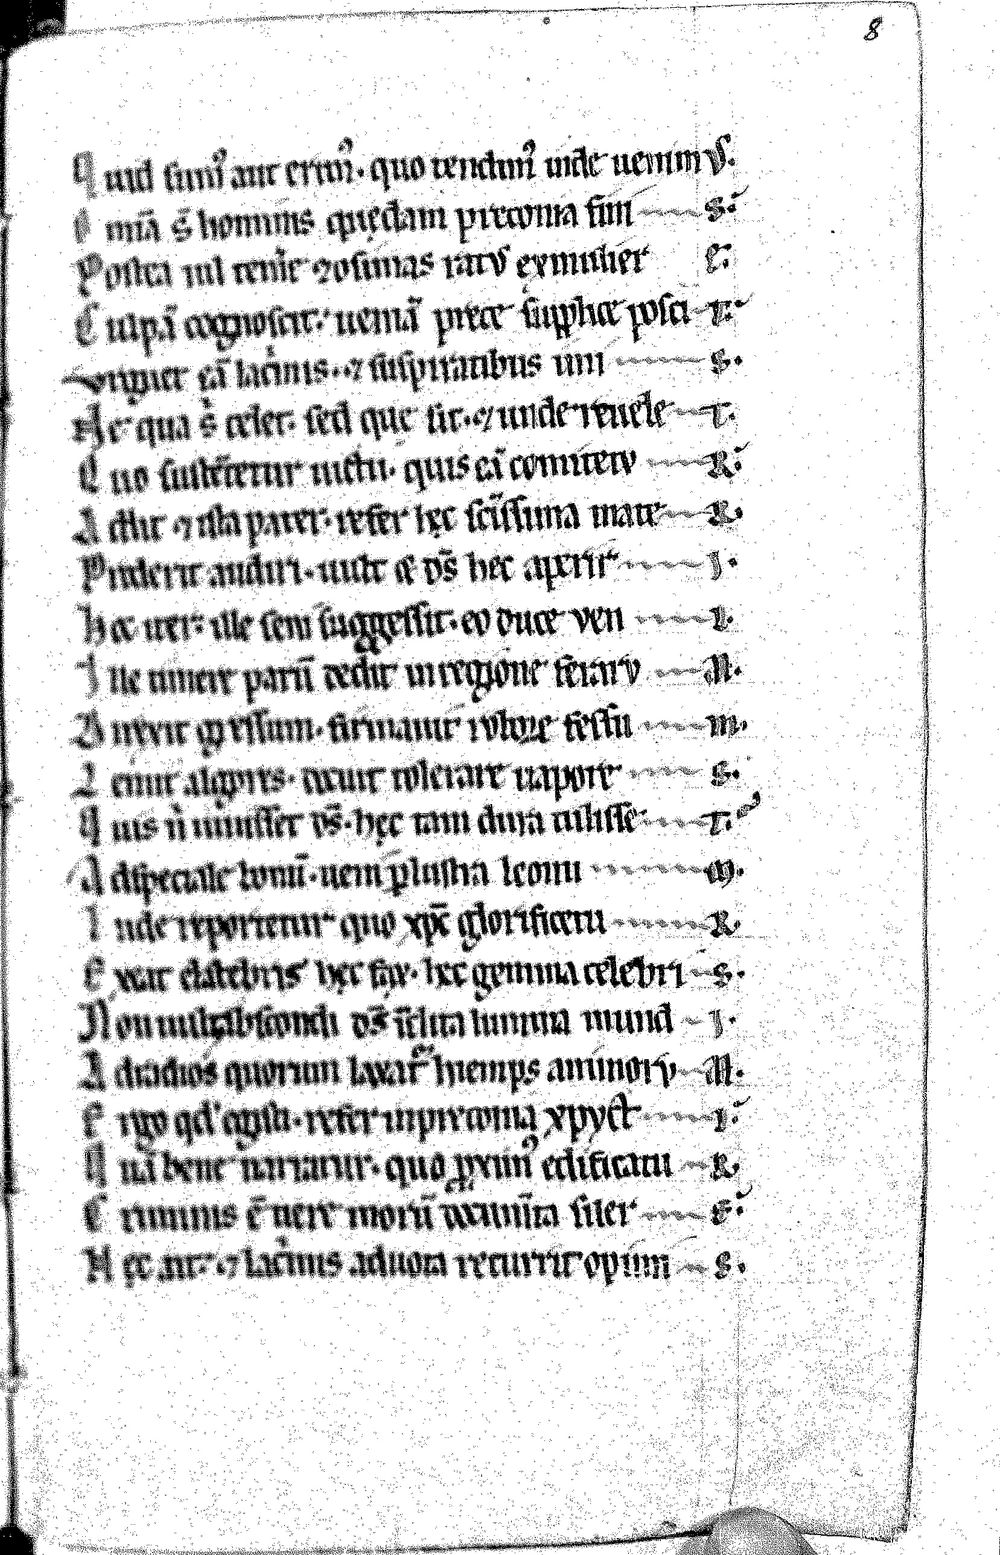 8
Quid sumꝰ aut erimꝰ. quo tendimꝰ inde uenimuS.
Omīa s̄ hominis quędam preconia fini S.
Postea nil tenꝰe zosimas ratus exmulier E.
Culpā cognoscit. ueniā prece supplice posci T.
Vrguet eā lacimis. ⁊ suspiratibus uni S.
Ac qua s celer. sed que sit. ⁊ unde reuele T.
Quo sustētetur uictu. quis eā comitetu R.
Adhic ⁊ ista pater. refer hęc scissima mate R.
Puderit audiri. uult & dȳs hec aperir I.
Hoc iter. ille seni suggessit. eo duce ven I.
Ille timere parū dedit in regione feraru M.
Direxit gressum. firmauit robore fessu M.
Leniit algores. docuit tolerare uapore S.
Quis n̄ minister dȳs. hęc tam dura tulisse T.
Ad speciale bonū. uem p lustra leonu M.
Inde reportetur quo xpc glorificetu R.
Exeat elatebris hęc fax. hęc gemma celebri S.
Non uult abscondi dȳs īclita lumina mund I.
Ad radios quorum laxat hiemps animoru M.
Ergo qd egisti. refer in preconia xpyct I.
Quā bene narratur. quo proximꝰ edificatu R.
Criminis ē uere morū documīta siler E.
Hęc ait. ⁊ lacimis aduota recurrit opimi S.